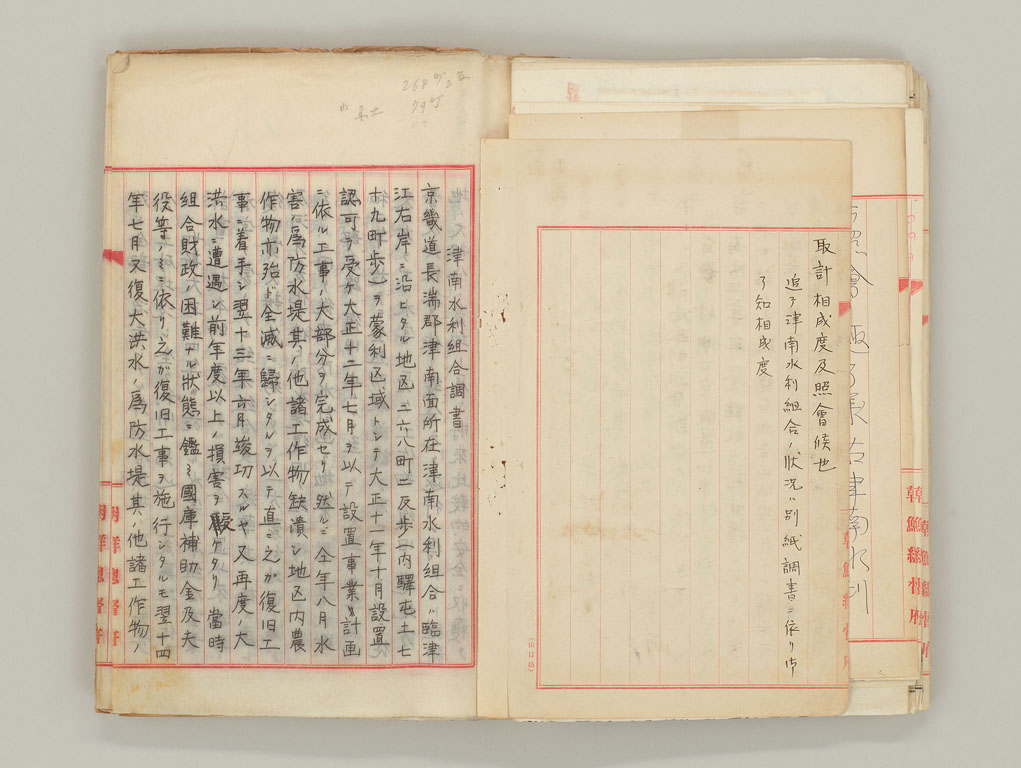 取計相成度及照會候也
追テ津南水利組合ノ狀況ハ別紙調書ニ依リ御
了知相成度
津南水利組合調書
京畿道長湍郡津南面所在津南水利組合ハ臨津
江右岸ニ沿ヒタル地区二六八町二反歩(内驛屯土七
十九町歩)ヲ蒙利区域トシテ大正十一年十月設置
認可ヲ受ケ大正十二年七月ヲ以テ設置事業計画
ニ依ル工事ノ大部分ヲ完成セリ然ルニ仝年八月水
害ノ爲防水堤其ノ他諸工作物缺潰シ地区内農
作物亦殆ド全滅ニ歸シタルヲ以テ直ニ之ガ復旧工
事ニ着手シ翌十三年六月竣功スルヤ又再度ノ大
洪水ニ遭遇シ前年度以上ノ損害ヲ受ケタリ當時
組合財政ノ困難ナル狀態ニ鑑ミ國庫補助金及夫
役等ノミニ依リ之ガ復旧工事ヲ施行シタルモ翌十四
年七月又復大洪水ノ爲防水堤其ノ他諸工作物ノ
朝鮮總督府
朝鮮總督府
268町2反
79町